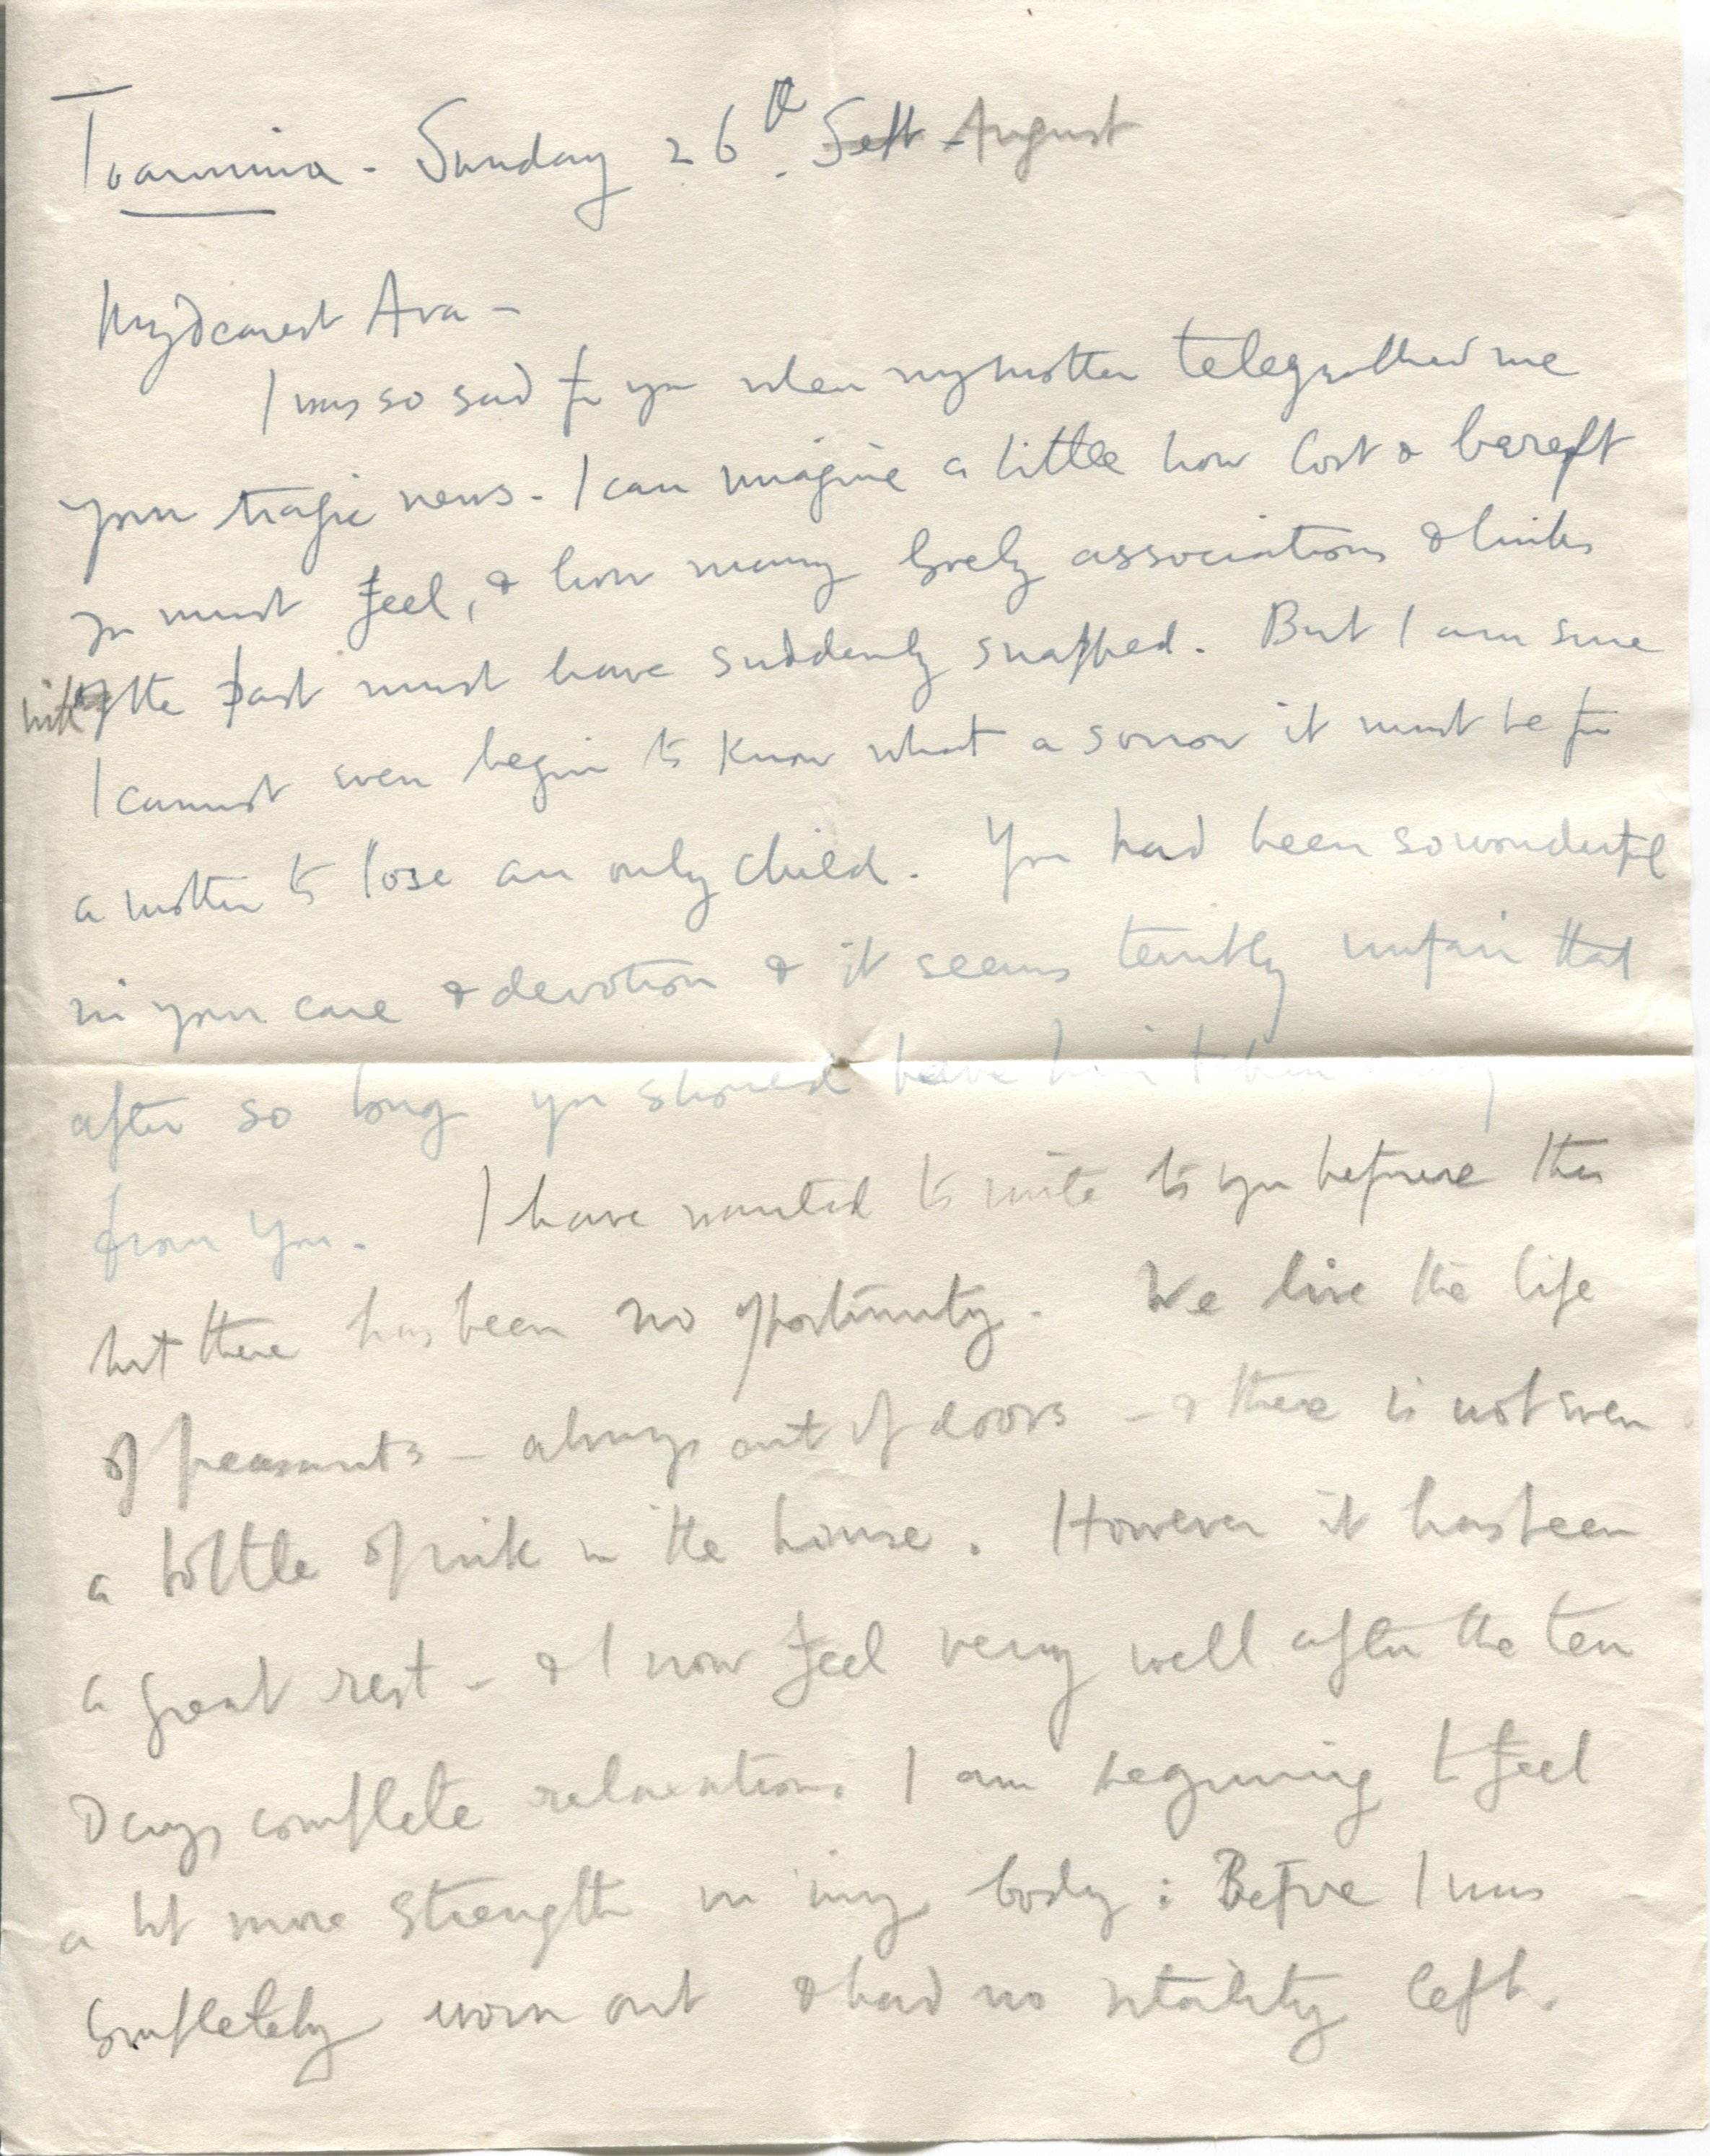 Toarmina - Sunday 26th. Sept - August
My dearest Ava -
I was so sad for you when my mother telegraphed me
your tragic news - I can imagine a little how lost & bereft
you must feel, & how many lovely associations & links
with the past must have suddenly snapped. But I am sure
I cannot even begin to know what a sorrow it must be for
a mother to lose an only child. You had been so wonderful
in your care & devotion & it seems terribly unfair that
after so long you should have him taken away
from you. I have wanted to write to you before this
but there has been no opportunity. We live the life
of peasants - always out of doors - & there is not even
a bottle of ink in the house. However it has been
a great rest - & I now feel very well after the ten
days complete relaxation. I am beginning to feel
a bit more strength in my body : Before I was
completely worn out & had no vitality left.